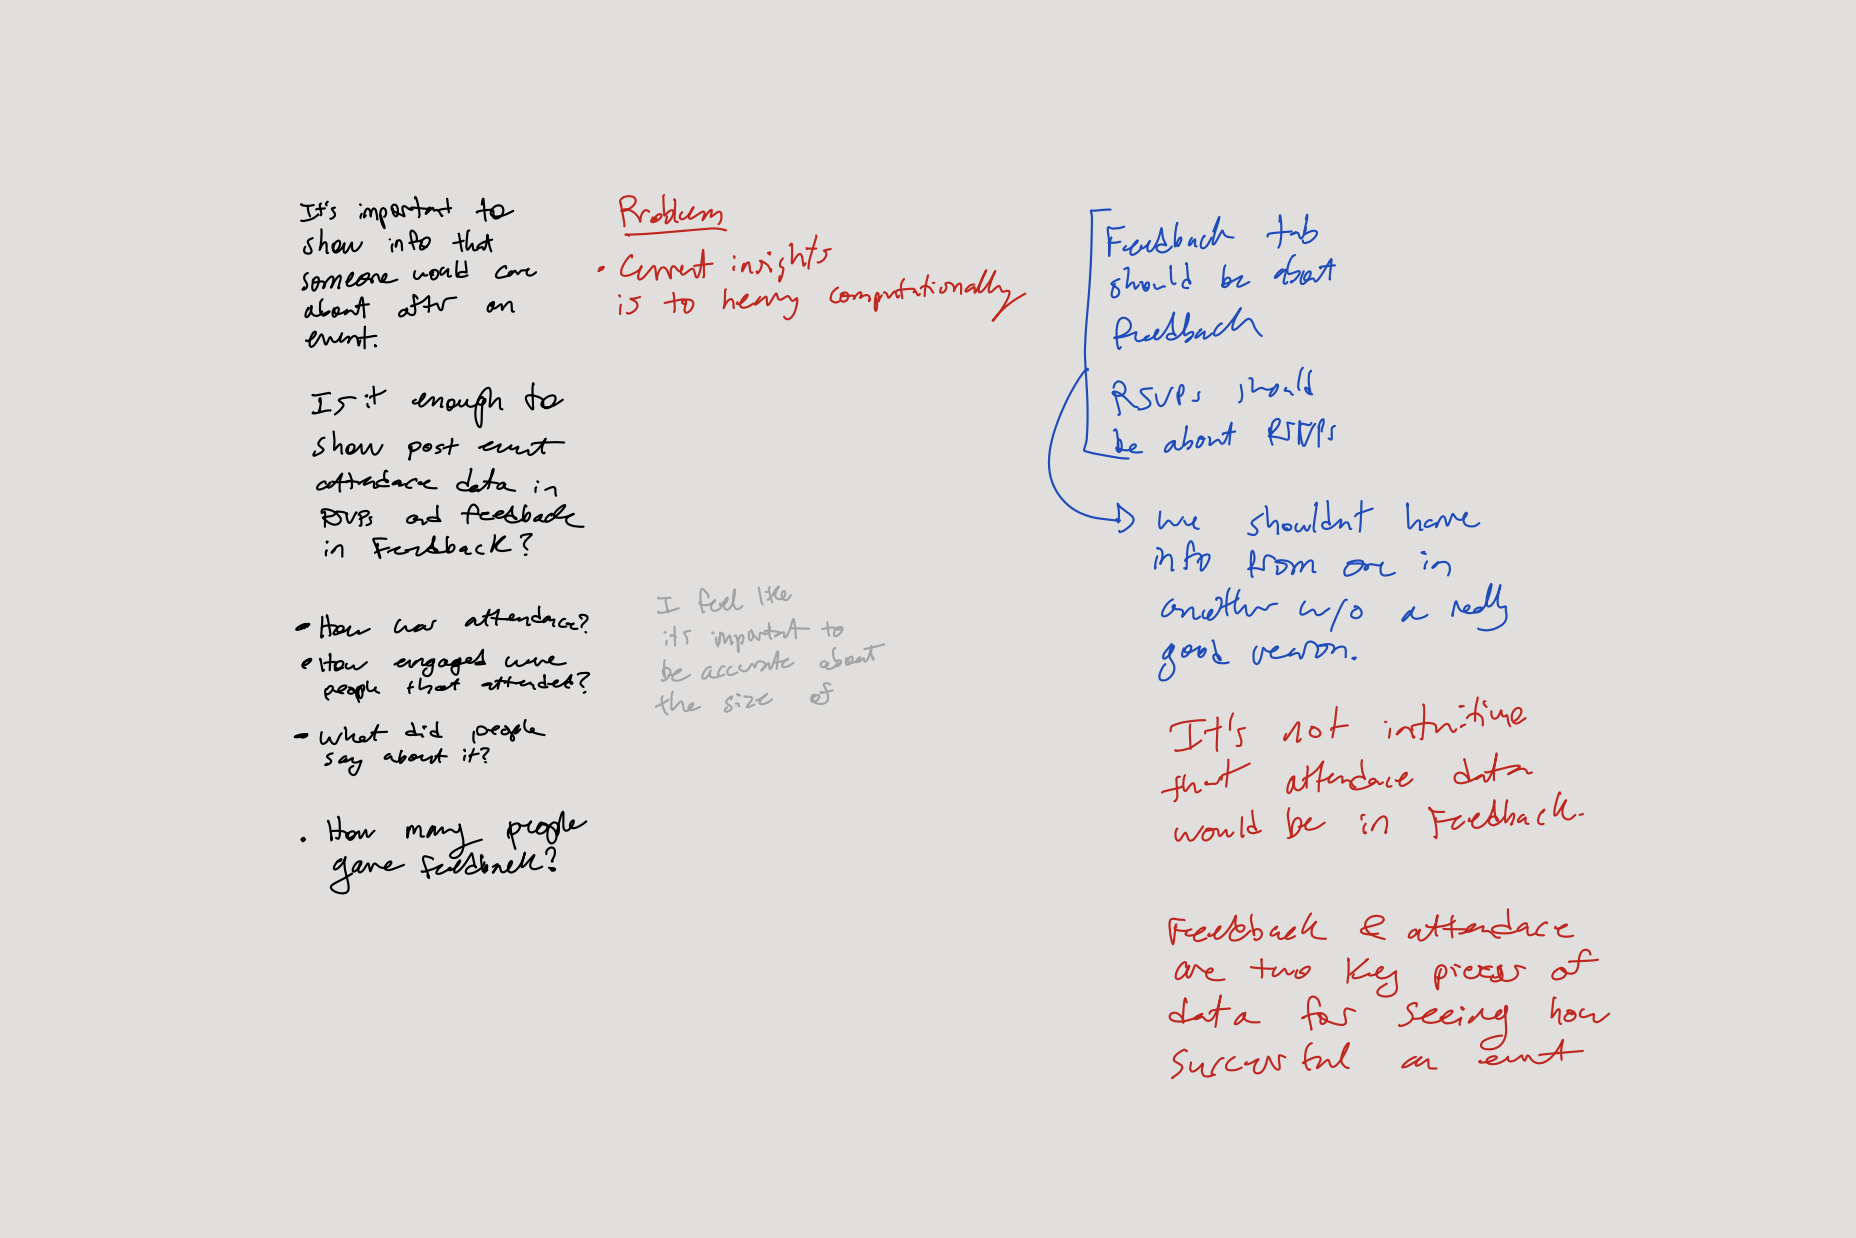 It's important to
show info that
someone would care
about after an
event.
Is it enough to
show post event
attendace data in
RSVPs and feedback
in Feedback?
• How was attendance?
• How engaged were
people that attended?
• What did people
say about it?
• How many people
gave feedback?
Problem
• Current insights
is to heavy computationally
I feel like
its important to
be accurate about
the size of
Feedback tab
should be about
feedback
RSVPs should
be about RSVPs
We shouldnt have
info from one in
another w/o a really
good reason.
It's not intuitive
that attendace data
would be in Feedback.
Feedback & attendace
are two key pieces of
data for seeing how
successful an event